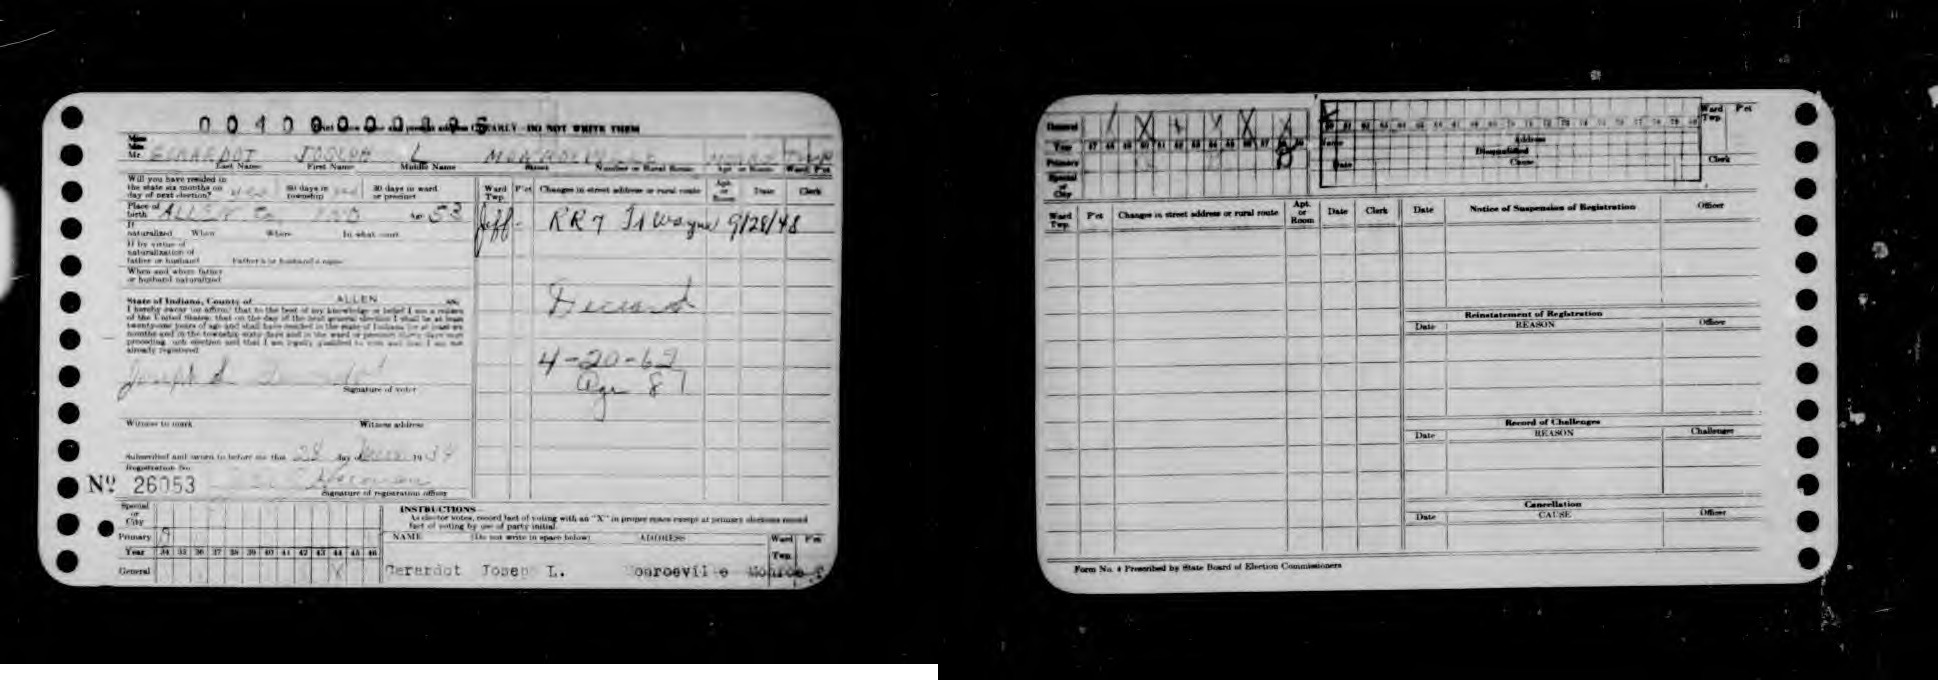 DO NOT WRITE THEM
Mr. GERARDOT JOSEPH L MONROEVILLE MONROE TWP
Last Name First Name Middle Name Street Number or Rural Route Apt. or Room Ward P'ct
Will you have resided in
the state six months on
day of next election? yes 60 days in
township yes 30 days in ward
or precinct
Place of
birth ALLEN Co. IND Age 53
If
naturalized When Where In what court
If by virtue of
naturalization of
father or husband Father's or husband's name
When and where father
or husband naturalized
State of Indiana, County of ALLEN ss:
I hereby swear (or affirm) that to the best of my knowledge or belief I am a citizen
of the United States; that on the day of the next general election I shall be at least
twenty-one years of age and shall have resided in the state of Indiana for at least six
months and in the township sixty days and in the ward or precinct thirty days next
preceding such election and that I am legally qualified to vote and that I am not
already registered
Joseph L
Signature of voter
Witness to mark Witness address
Subscribed and sworn to before me this 28 day of 1934
Registration No.
Nº 26053
Signature of registration officer
Ward
Twp. P'ct Changes in street address or rural route Apt.
or
Room Date Clerk
Jeff - RR 7 Ft Wayne 9/28/48
Deceased
4-20-62
Age 81
Special
or
City
Primary
Year 34 35 36 37 38 39 40 41 42 43 44 45 46
General X
INSTRUCTIONS
As elector votes, record fact of voting with an "X" in proper space except at primary elections record
fact of voting by use of party initial.
NAME (Do not write in space below) ADDRESS Ward
Twp. P'ct
Gerardot Josep L. Monroeville Monroe T
General
Year 47 48 49 50 51 52 53 54 55 56 57 58 59
Primary
Special
or
City
Address
Name
Disqualified
Date Cause
Ward
Twp. P'ct
Clerk
Ward
Twp. P'ct Changes in street address or rural route Apt.
or
Room Date Clerk
Date Notice of Suspension of Registration Officer
Reinstatement of Registration
Date REASON Officer
Record of Challenges
Date REASON Challenger
Cancellation
Date CAUSE Officer
Form No. 4 Prescribed by State Board of Election Commissioners